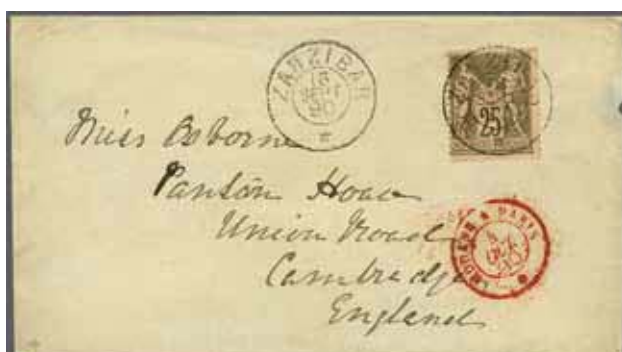 ZANZIBAR
25
Miss Osborne
Panton House
Union Road
Cambridge
England
A PARIS